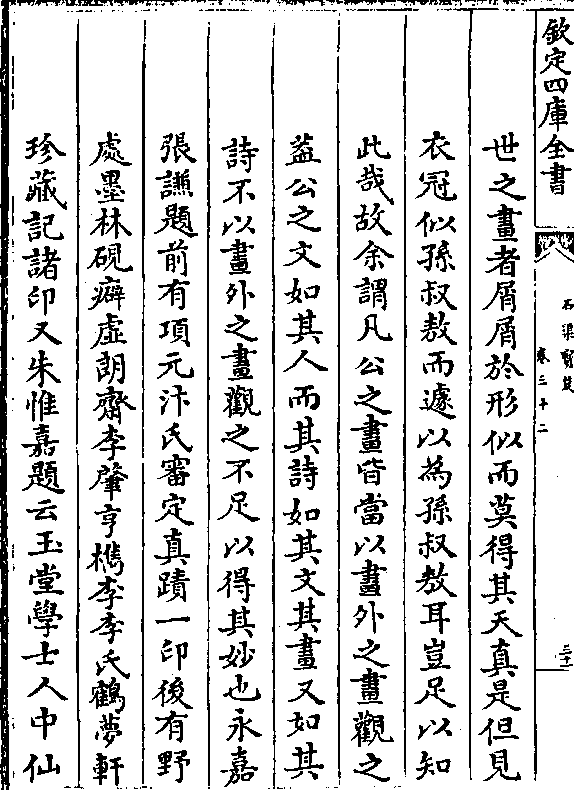 欽定四庫全書
石渠寳笈
卷三十二
三十一
世之畫者屑屑於形似而莫得其天真是但見
衣冠似孫叔敖而遽以為孫叔敖耳豈足以知
此哉故余謂凡公之畫皆當以畫外之畫觀之
葢公之文如其人而其詩如其文其畫又如其
詩不以畫外之畫觀之不足以得其妙也永嘉
張謙題前有項元汴氏審定真蹟一印後有野
處墨林硯癖虚朗齋李肇亨檇李李氏鶴夢軒
珍藏記諸印又朱惟嘉題云玉堂學士人中仙